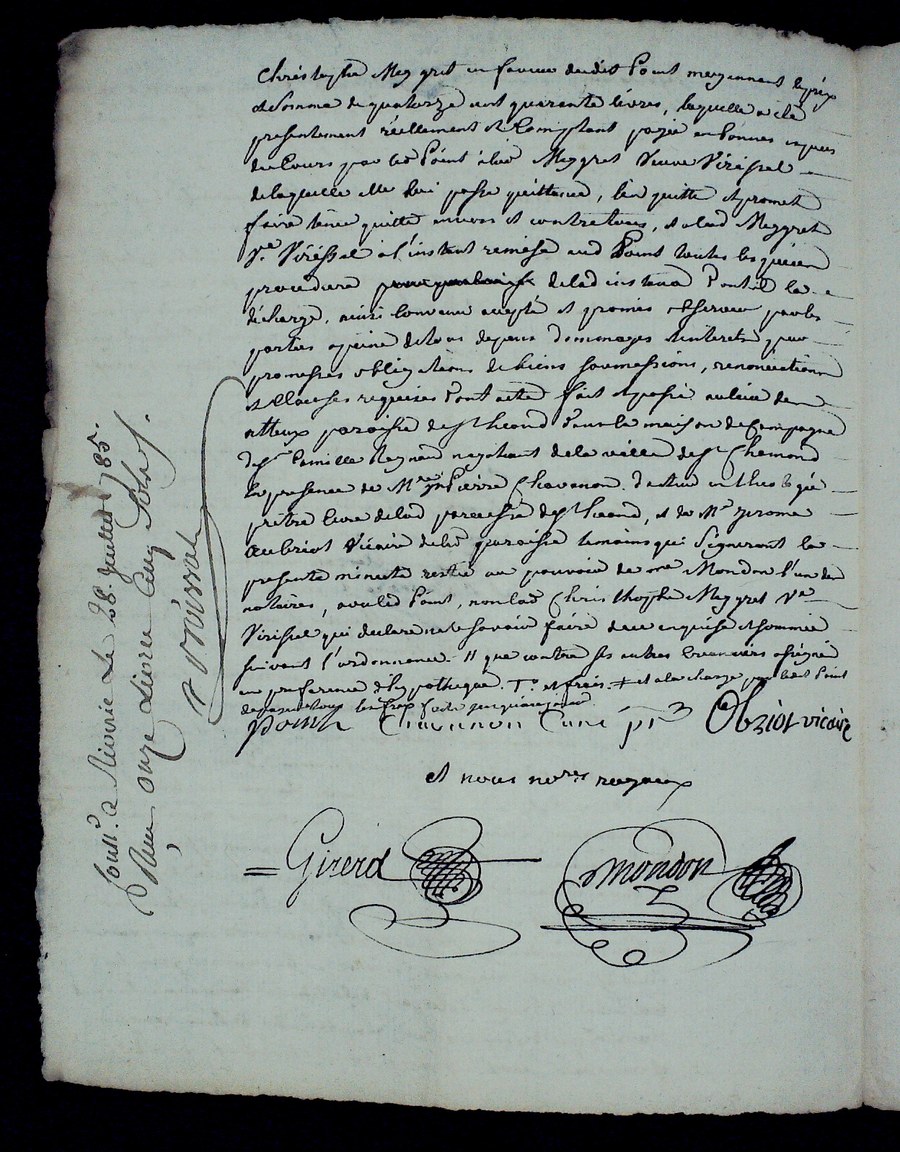 Christophe Meygret en faveur dudit Point moyennant le prix
et somme de quatorze cent quarante livres, laquelle a été
presentement réellement et Comptant payée en bonnes especes
de Cours par led Point à lad Meygret Veuve Virissel
de laquelle elle lui passe quittance, l'en quitte et promet
faire tenir quitte envers et contre tous, et a lad Meygret
Ve Virissel à l'instant remise aud Point toutes les pieces
procedure de lad instance dont il la
décharge, ainsi convenu accepté et promis observer par les
parties à peine de tous depens dommages interets, par
promesses obligations de biens soumissions, renonciations
et Clauses requises Dont acte fait et passé au lieu de
paroisse de St heand Dans la maison de Campagne
de Sr Camille Reynard negotiant de la ville de St Chamond
En presence de Mre Pierre Chavanon docteur en theologie
prêtre Curé de lad paroisse de St heand, et de Mre Jerome
Aubriot Vicaire de lad paroisse temoins qui Signeront la
presente minute restée au pouvoir de me Mondon l'un des
notaires, avec led Point, non lad Christophe Meygret Ve
Virissel qui declare ne le savoir faire de ce enquise et sommée
suivant l'ordonnance. 11 que contre ses autres Creanciers
une preference d'hypotheque. et frais. + et a la charge par ledit Point
de payer tous les frais faits jusqu'à ce jour
Point Chavanon Curé ptr Obriot vicaire
et nous nores royaux
= Girerd Mondon
Contr. a Riverie Le 28 Juillet 1785.
Reçu onze Livres Cinq Sols